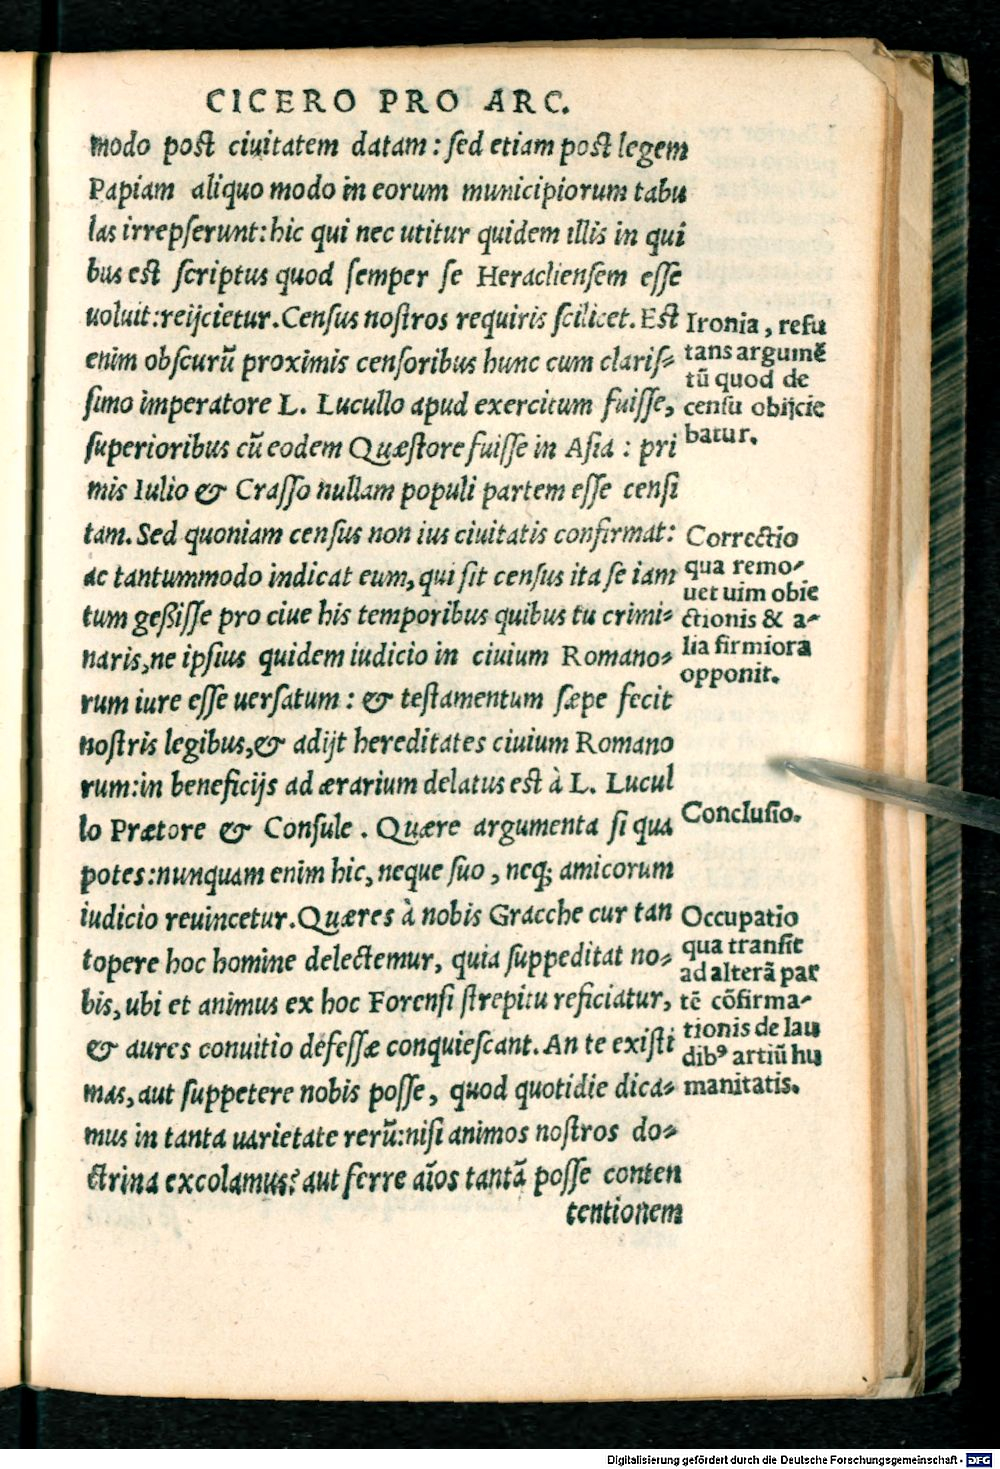 CICERO PRO ARC.
modo post ciuitatem datam: sed etiam post legem
Papiam aliquo modo in eorum municipiorum tabu
las irrepserunt: hic qui nec utitur quidem illis in qui
bus est scriptus quod semper se Heracliensem esse
uoluit: reijcietur. Census nostros requiris scilicet. Est
enim obscurũ proximis censoribus hunc cum claris-
simo imperatore L. Lucullo apud exercitum fuisse,
superioribus cũ eodem Quæstore fuisse in Asia: pri
mis Iulio & Crasso nullam populi partem esse censi
tam. Sed quoniam census non ius ciuitatis confirmat:
ac tantummodo indicat eum, qui sit census ita se iam
tum geßisse pro ciue his temporibus quibus tu crimi-
naris, ne ipsius quidem iudicio in ciuium Romano-
rum iure esse uersatum: & testamentum sæpe fecit
nostris legibus, & adijt hereditates ciuium Romano
rum: in beneficijs ad ærarium delatus est à L. Lucul
lo Prætore & Consule. Quære argumenta si qua
potes: nunquam enim hic, neque suo, neq; amicorum
iudicio reuincetur. Quæres à nobis Gracche cur tan
topere hoc homine delectemur, quia suppeditat no-
bis, ubi et animus ex hoc Forensi strepitu reficiatur,
& aures conuitio defessæ conquiescant. An te existi
mas, aut suppetere nobis posse, quod quotidie dica-
mus in tanta uarietate rerũ: nisi animos nostros do-
ctrina excolamus? aut ferre aĩos tantã posse conten
tentionem
Ironia, refu
tans argumẽ
tũ quod de
censu obijcie
batur.
Correctio
qua remo-
uet uim obie
ctionis & a-
lia firmiora
opponit.
Conclusio.
Occupatio
qua transit
ad alterã par
tẽ cõfirma-
tionis de lau
dibꝰ artiũ hu
manitatis.
Digitalisierung gefördert durch die Deutsche Forschungsgemeinschaft - DFG